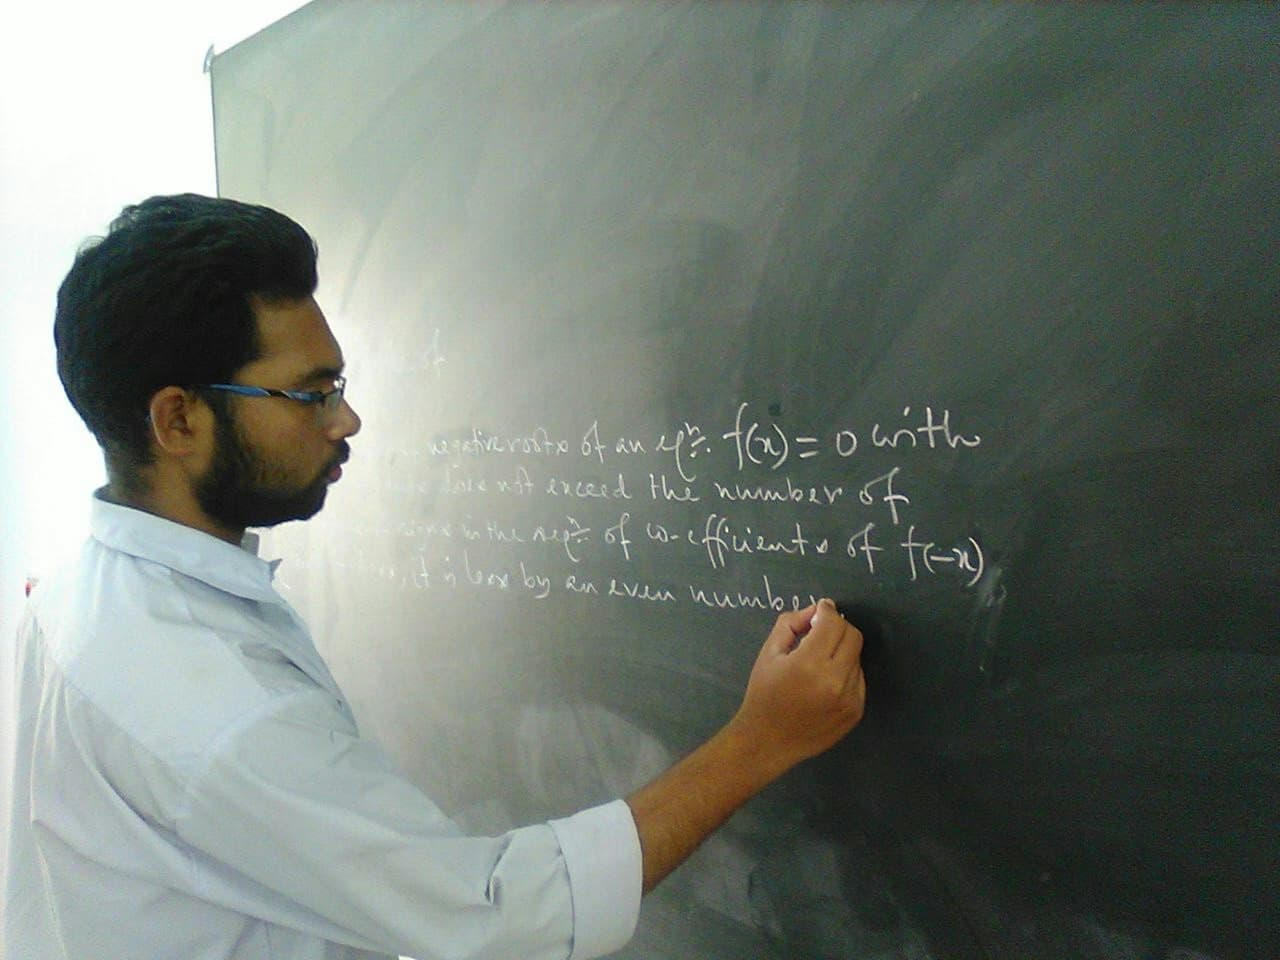 of
negative roots of an eqn. f(x) = 0 with
does not exceed the number of
signs in the seqn of co-efficients of f(-x)
, it is less by an even number.